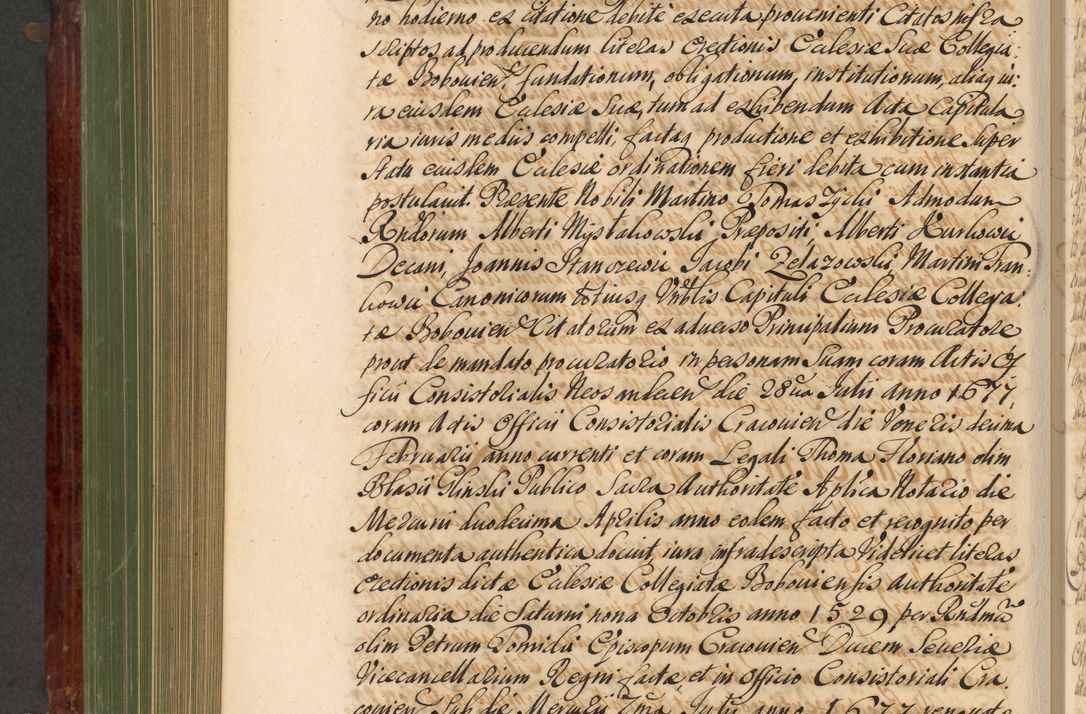 no hodierno ex citatione debite executa provenienti Citatos infra
scriptos ad producendum literas erectionis Ecclesiæ Suæ Collegia:
tæ Bobovien, fundationum, obligationum, institutionum, aliaq iu:
ra eiusdem Ecclesiæ Suæ, tum ad exhibendum Acta Capitula
ria iuris mediis compelli, factaq productione et exhibitione super
statu eiusdem Ecclesiæ ordinationem fieri debita cum instantia
postulavit. Præsente Nobili Martino Tomaszycki Admodum
Rndorum Alberti Mystakowski Præpositi, Alberti Kurkowic
Decani, Joannis Stanczewic Jacobi Zelazowski, Martini Fran:
kowic Canonicorum totiusq Vnblis Capituli Ecclesiæ Collegia:
tæ Bobovien Citatorum ex adverso Principalium Procuratore
prout de mandato procuratorio in personam Suam coram Actis Of
ficii Consistorialis Neosandecen die 28va Julii anno 1677,
coram Actis Officii Consistorialis Cracovien die Veneris decima
Februarii anno currenti et coram Legali Thoma Floriano olim
Blasii Glinski Publico Sacra Authoritate Aplica Notario die
Mercurii duodecima Aprilis anno eodem facto et recognito per
documenta authentica docuit, iura infradescripta Videlicet literas
erectionis dictæ Ecclesiæ Collegiatæ Boboviensis authoritate
ordinaria die Saturni nona Octobris anno 1529 per Rndmu
olim Petrum Tomicki Episcopum Cracovien Ducem Severiæ
Vicecancellarium Regni factæ, et in Officio Consistoriali Cra
covien Sub die Mercurii Julii anno 1677